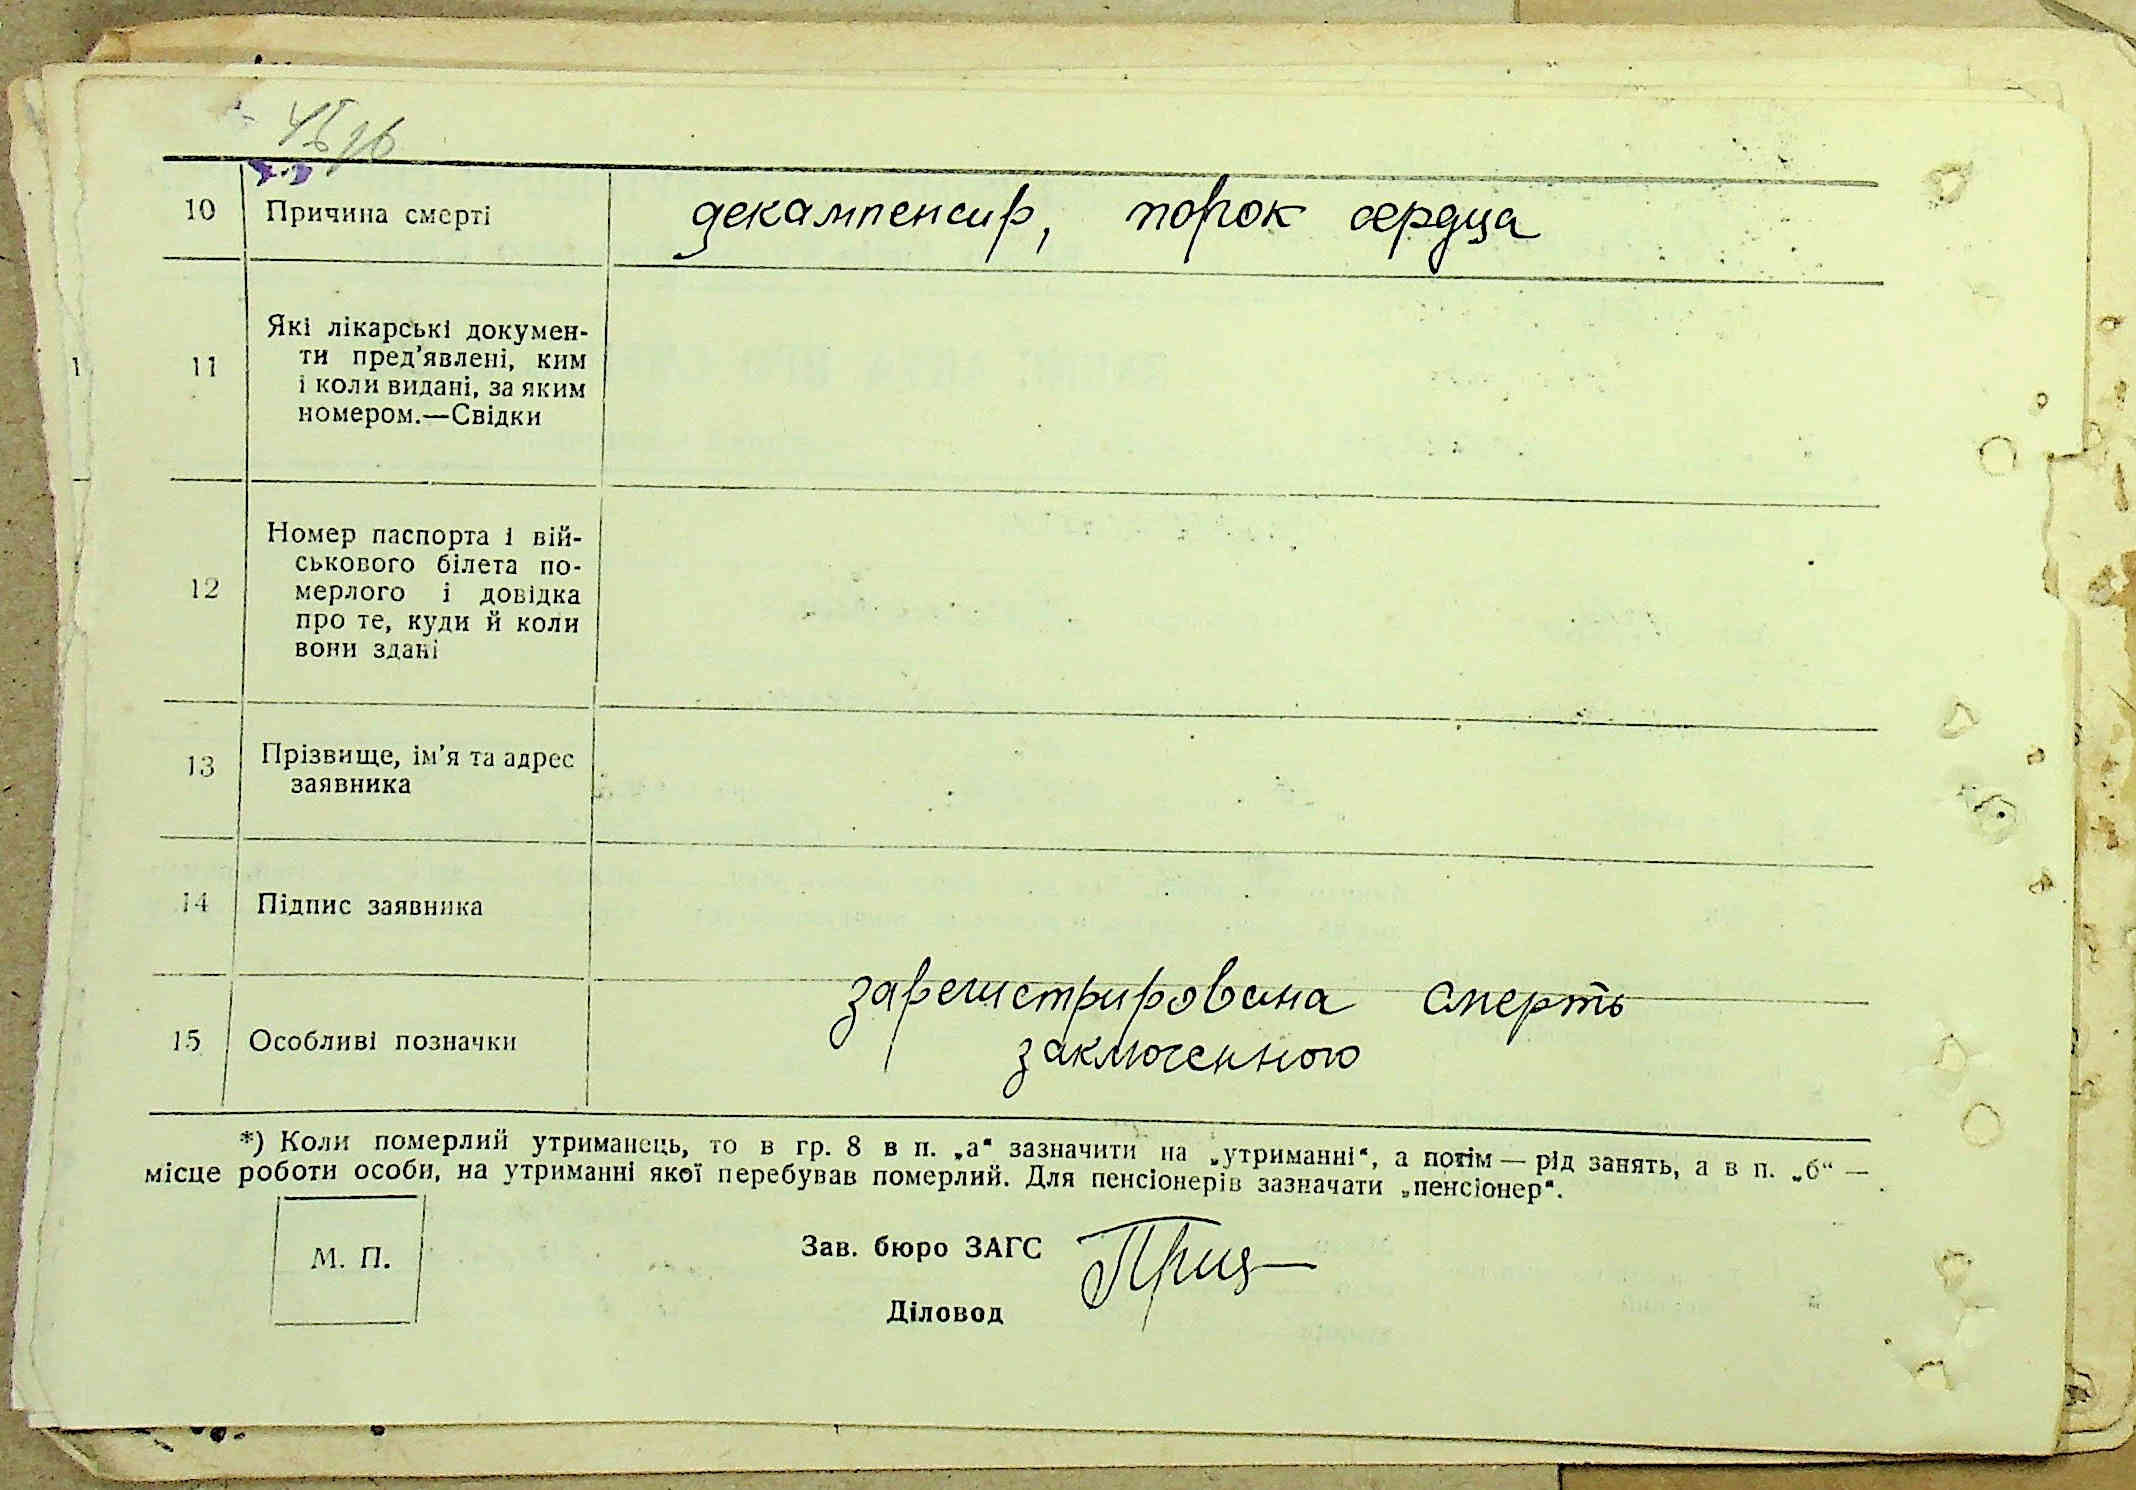 45зв
10 Причина смерті декампенсир, порок сердца
11 Які лікарські докумен-
ти пред'явлені, ким
і коли видані, за яким
номером.—Свідки
12 Номер паспорта і вій-
ськового білета по-
мерлого і довідка
про те, куди й коли
вони здані
13 Прізвище, ім'я та адрес
заявника
14 Підпис заявника
15 Особливі позначки зарегистрирована смерть
заключенного
*) Коли померлий утриманець, то в гр. 8 в п. „а“ зазначити на „утриманні“, а потім — рід занять, а в п. „б“ —
місце роботи особи, на утриманні якої перебував померлий. Для пенсіонерів зазначати „пенсіонер“.
М. П.
Зав. бюро ЗАГС
Діловод